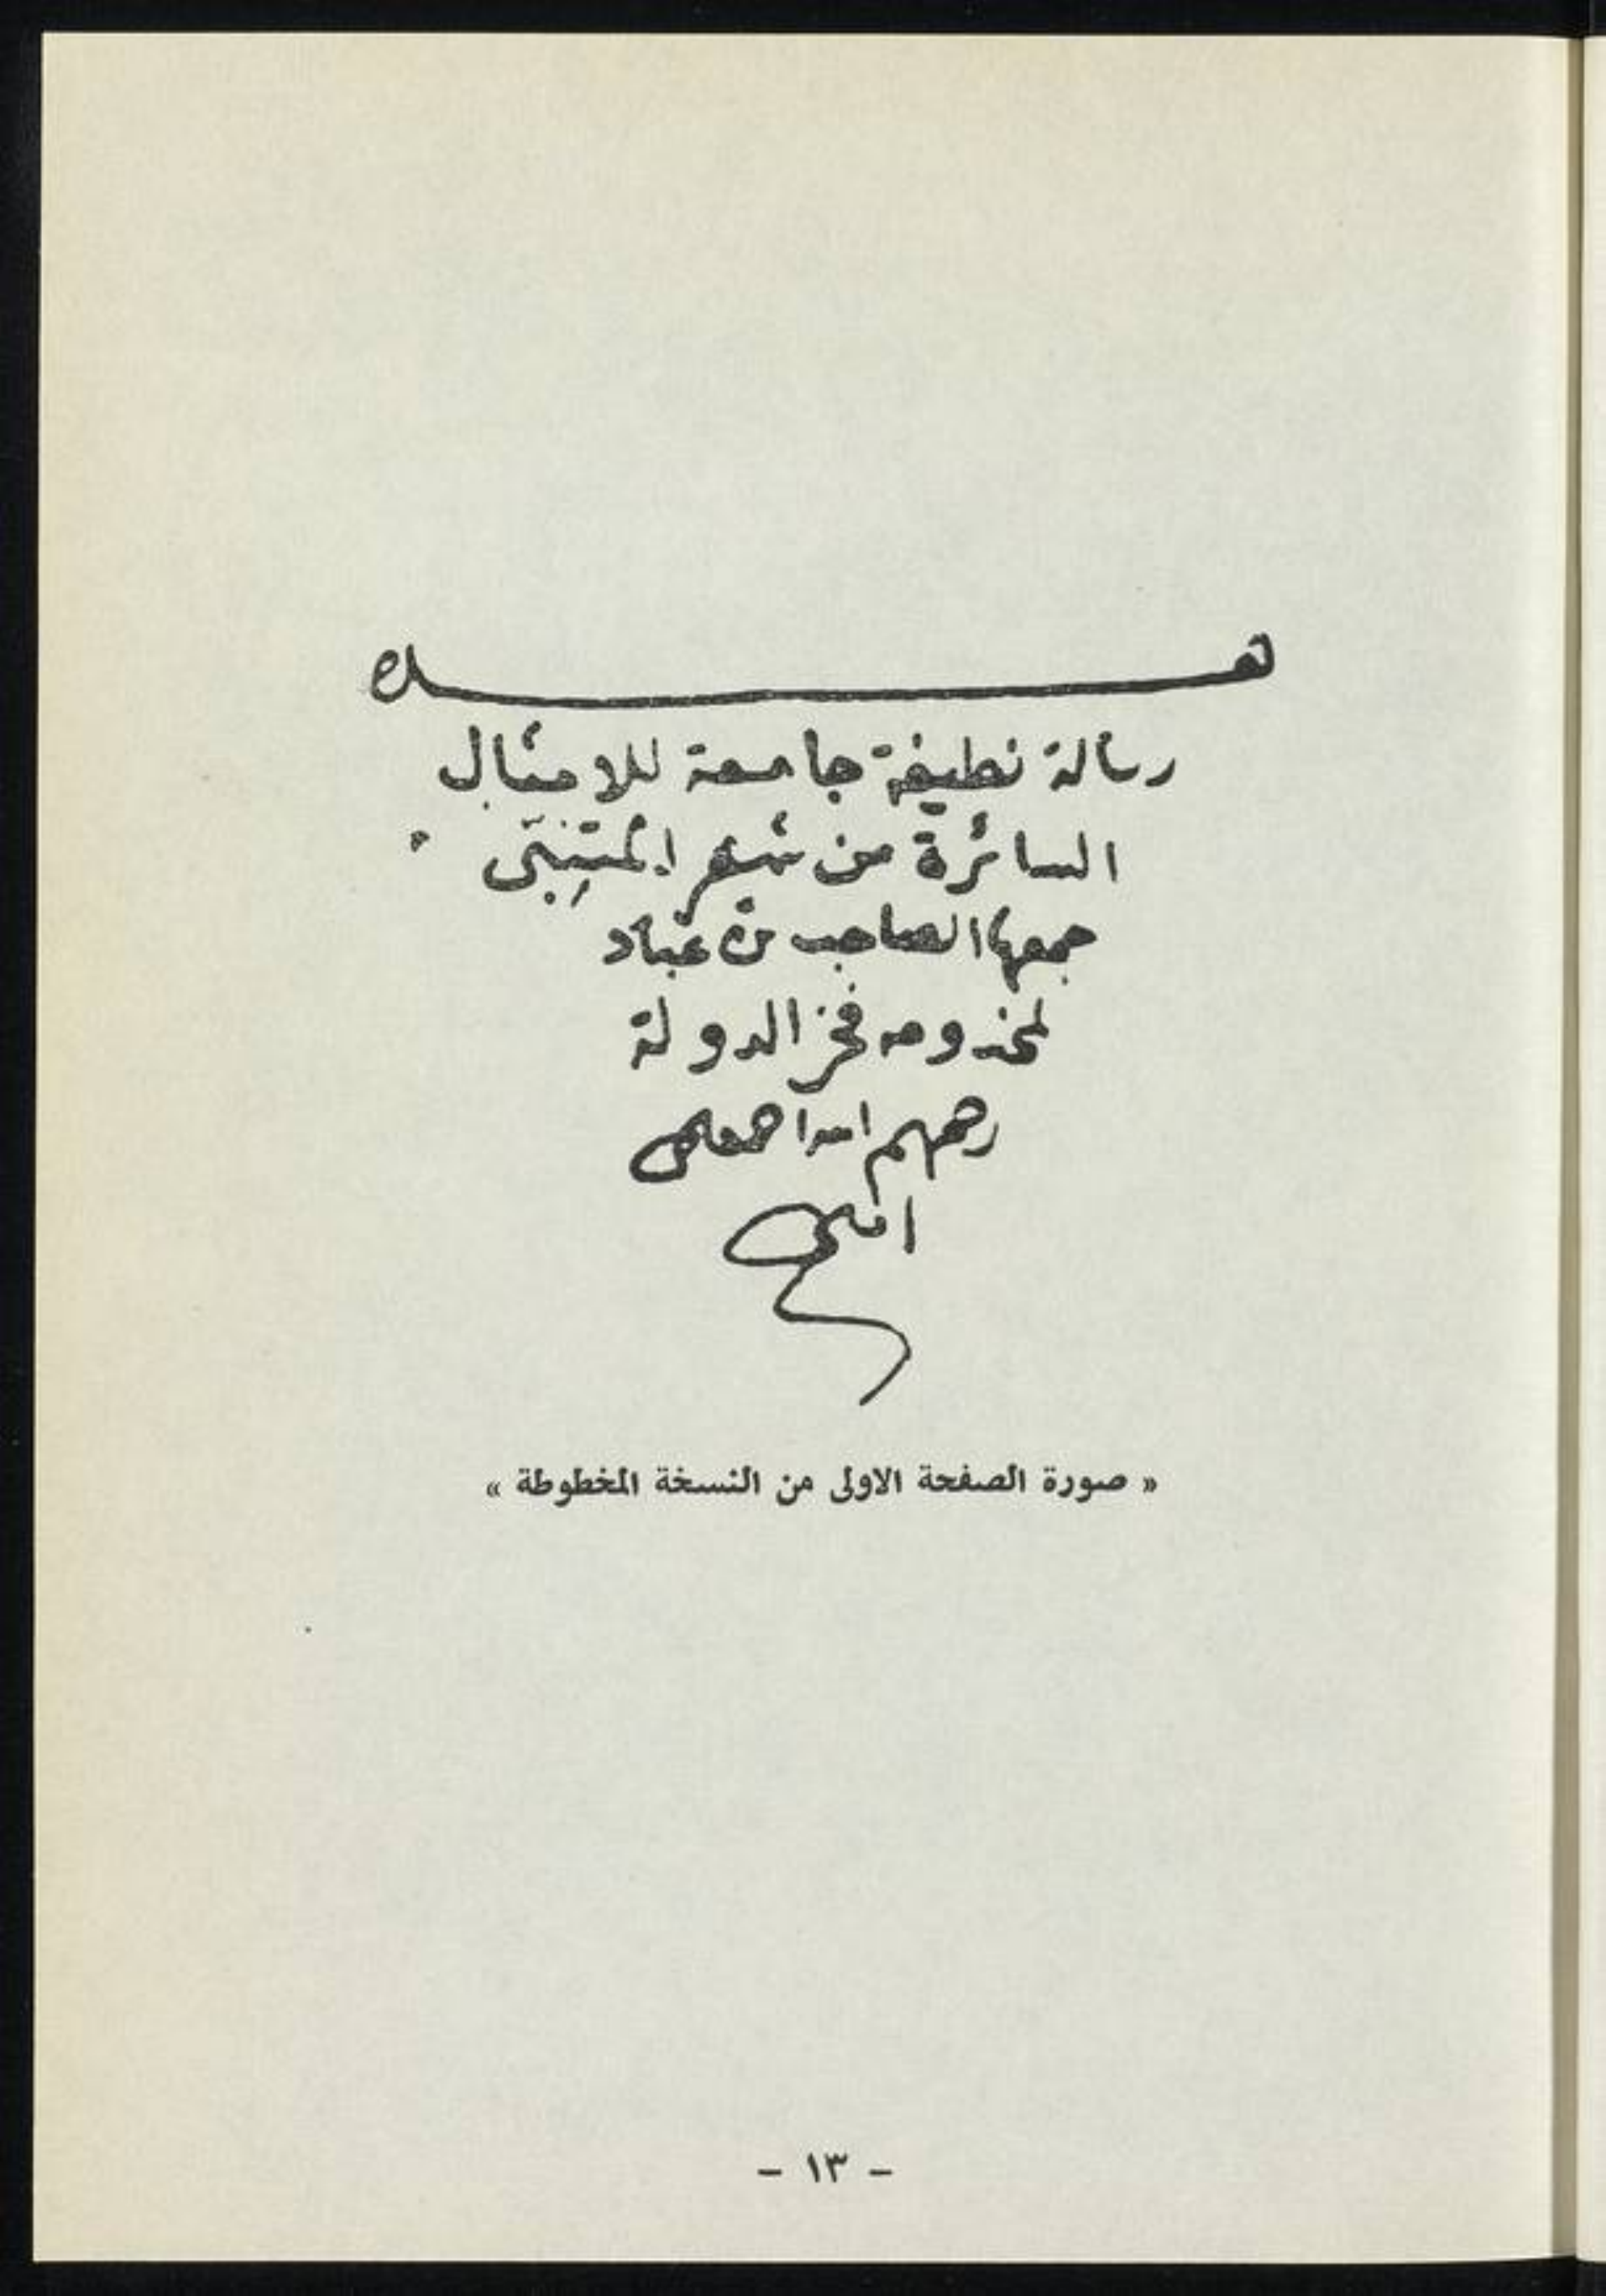 هذه
رسالة لطيفة جامعة للامثال
السائرة من شعر المتنبّى
جمعها الصاحب بن عباد
لمخدومه فخر الدولة
رحمهم الله اجمعين
امين
« صورة الصفحة الاولى من النسخة المخطوطة »
- ١٣ -